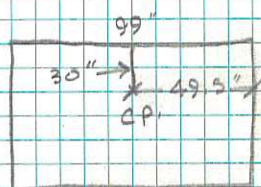 99"
30"
49.5"
CP.